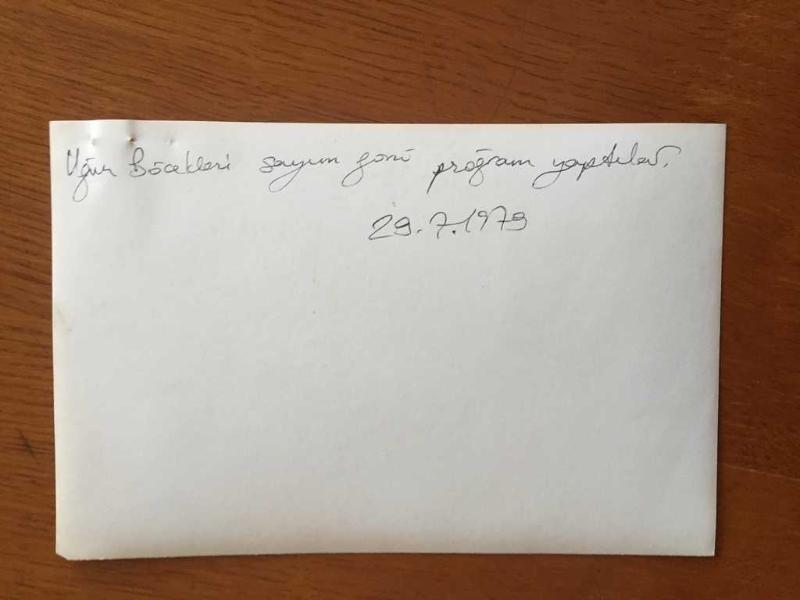 Uğur Böcekleri sayım günü proğram yaptılar.
29.7.1979